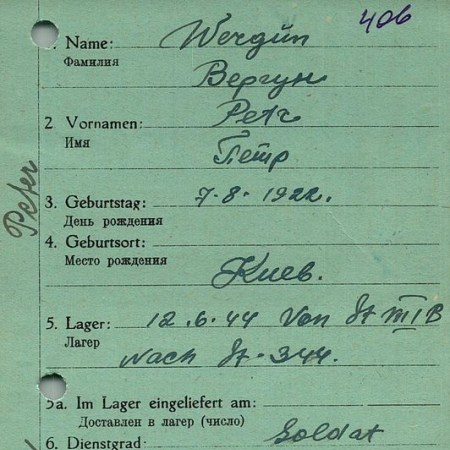 406
1. Name: Wergun
Фамилия Вергун
2. Vornamen: Petr
Имя Петр
Peter
3. Geburtstag: 7.8.1922.
День рождения
4. Geburtsort:
Место рождения Киев.
5. Lager: 12.6.44 Von St III B
Лагер nach St-344.
5a. Im Lager eingeliefert am:
Доставлен в лагер (число)
6. Dienstgrad: Soldat